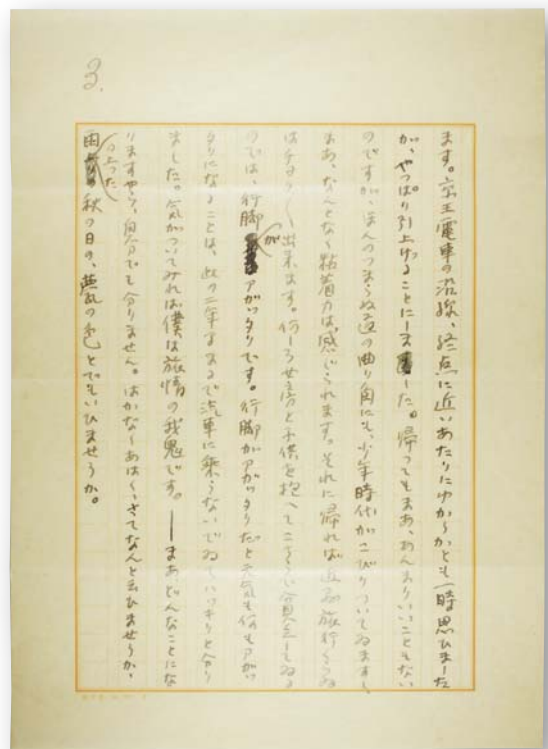 3.
ます。京王電車の沿線、終点に近いあたりにゆかうかとも一時思ひました
が、やつぱり引上げることにしました。帰つてもまあ、あんまりいいこともない
のですが、ほんのつまらぬ道の曲り角にも、少年時代がこびりついてゐますし、
まあ、なんとなく粘着力は感じられます。それに帰れば近郊旅行くらゐ
は千々出来ます。何しろ女房と子供を抱へてこちらで貧乏してゐる
のでは、行脚がアガッタリです。行脚がアガッタリだと元気も何もアガッ
タリになることは、此の二年まるで汽車に乗らないでゐてハッキリと分り
ました。気がついてみれば僕は旅情の我鬼です。——まあどんなことにな
りますやら、自分でも分りません。はかなくあはく、さてなんと云ひませうか、
雨の上つた秋の日の、蕪の色とでもいひませうか。